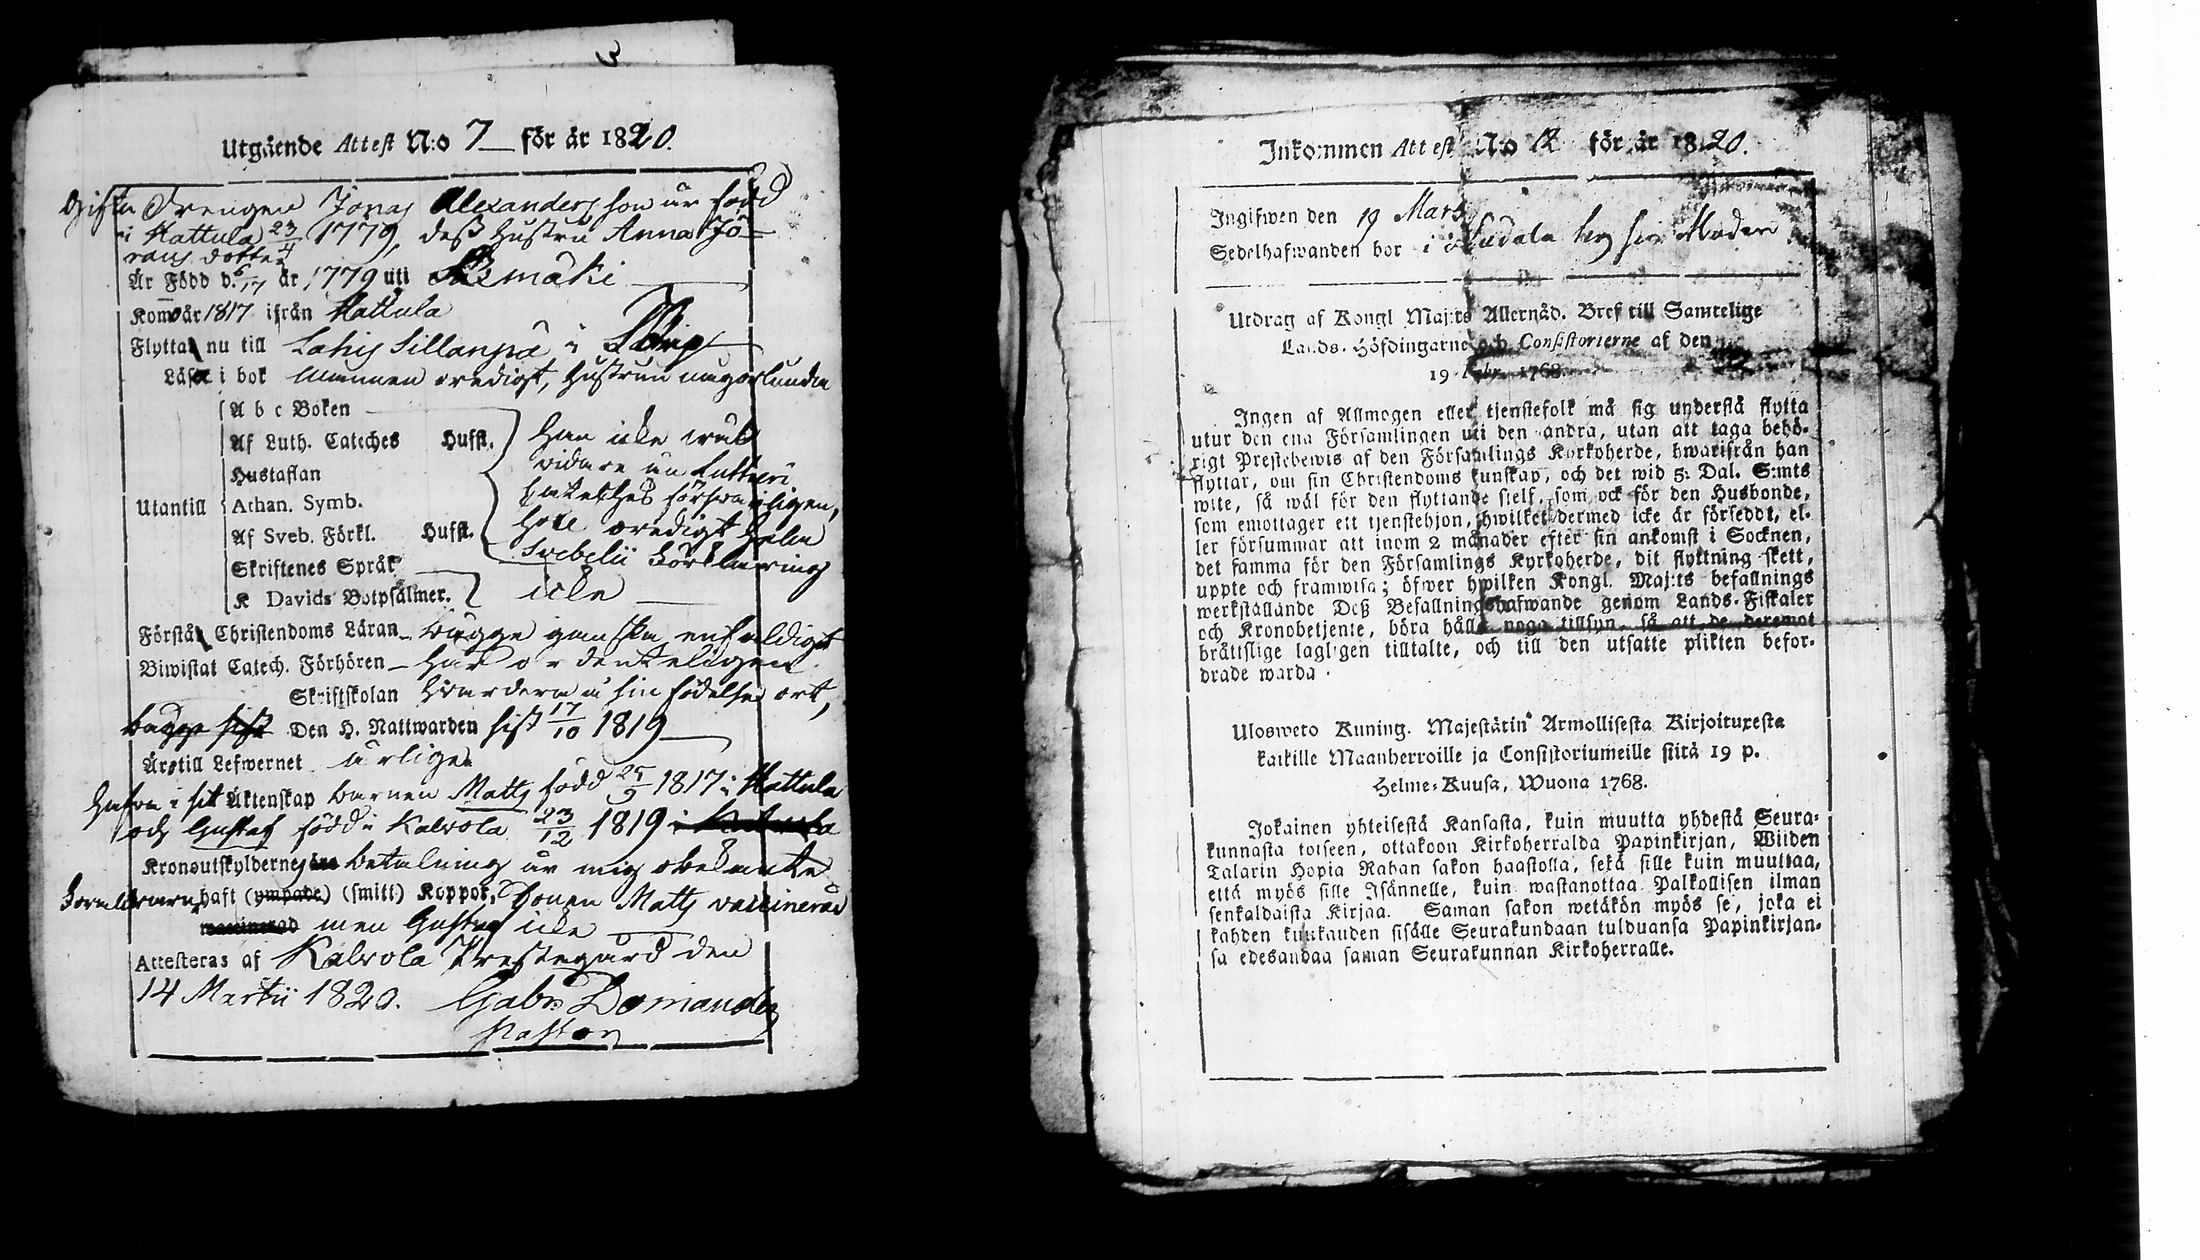 3
Utgående Attest N:o 7 för år 1820.
Gifta Drengen Jonas Alexandersson är född
i Hattula 23/4 1779, dess Hustru Anna Jö-
rans dotter
Är Född d. 6/17 år 1779 uti
Kom år 1817 ifrån Hattula
Flytta nu till Lahis Sillanpä i
Läser i bok Mannen oredigt, Hustrun någorlunda
A b c Boken
Af Luth. Cateches Husfl. Han icke
vidare än Lutheri
Hustaflan
Cateches försvarligen,
Utantill Athan. Symb.
Hon oredigt hela
Af Sveb. Förkl. Husfl.
Svebelii Förklaring
Skriftenes Språk
K Davids Botpsalmer. icke
Förstå Christendoms Läran Bägge ganska enfaldigt
Biwistat Catech. Förhören - Har ordenteligen
Skriftskolan hvardera i sin födelse ort,
Bägge sist Den H. Nattwarden sist 17/10 1819
Är till Lefwernet ärliga
Hafva i sit Äktenskap barnen Matts född 25/9 1817 i Hattula
och Gustaf född i Kalvola 23/12 1819
Kronoutskyldernes betalning är mig obekant
Föräldrarna haft (ympade) (smitt) Koppor, Sonen Matts vaccinerad
waccinerad men Gustaf icke
Attesteras af Kalvola Prestegård den
14 Martii 1820. Gabr. Domander
Pastor
Inkommen Attest N:o 12 för år 1820.
Ingifwen den 19 Mars
Sedelhafwanden bor i hos sin Moder
Utdrag af Kongl Maj:ts Allernåd. Bref till Samtelige
Lands-Höfdingarne och Consistorierne af den
19 Febr. 1768.
Ingen af Allmogen eller tjenstefolk må sig understå flytta
utur den ena Församlingen uti den andra, utan att taga behö-
rigt Prestebewis af den Församlings Kyrkoherde, hwarifrån han
flyttar, om sin Christendoms kunskap, och det wid 5: Dal. S:mts
wite, så wäl för den flyttande sjelf, som ock för den Husbonde,
som emottager ett tjenstehjon, hwilket dermed icke är försedt, el-
ler försummar att inom 2 månader efter sin ankomst i Socknen,
det samma för den Församlings Kyrkoherde, dit flyttning skett,
uppte och framwisa; öfwer hwilken Kongl. Maj:ts befallnings
werkställande Dess Befallningshafwande genom Lands-Fiskaler
och Kronobetjente, böra hålla noga tillsyn, så att de deremot
bråttslige lagligen tilltalte, och till den utsatte plikten befor-
drade warda.
Ulosweto Kuning. Majestätin Armollisesta Kirjoituxesta
kaikille Maanherroille ja Consistoriumeille siitä 19 p.
Helme-Kuusa, Wuona 1768.
Jokainen yhteisestä Kansasta, kuin muutta yhdestä Seura-
kunnasta toiseen, ottakoon Kirkoherralda Papinkirjan, Wiiden
Talarin Hopia Rahan sakon haastolla, sekä sille kuin muuttaa,
että myös sille Isännelle, kuin wastanottaa Palkollisen ilman
senkaldaista Kirjaa. Saman sakon wetäkön myös se, joka ei
kahden kuukauden sisälle Seurakundaan tulduansa Papinkirjan-
sa edesandaa saman Seurakunnan Kirkoherralle.